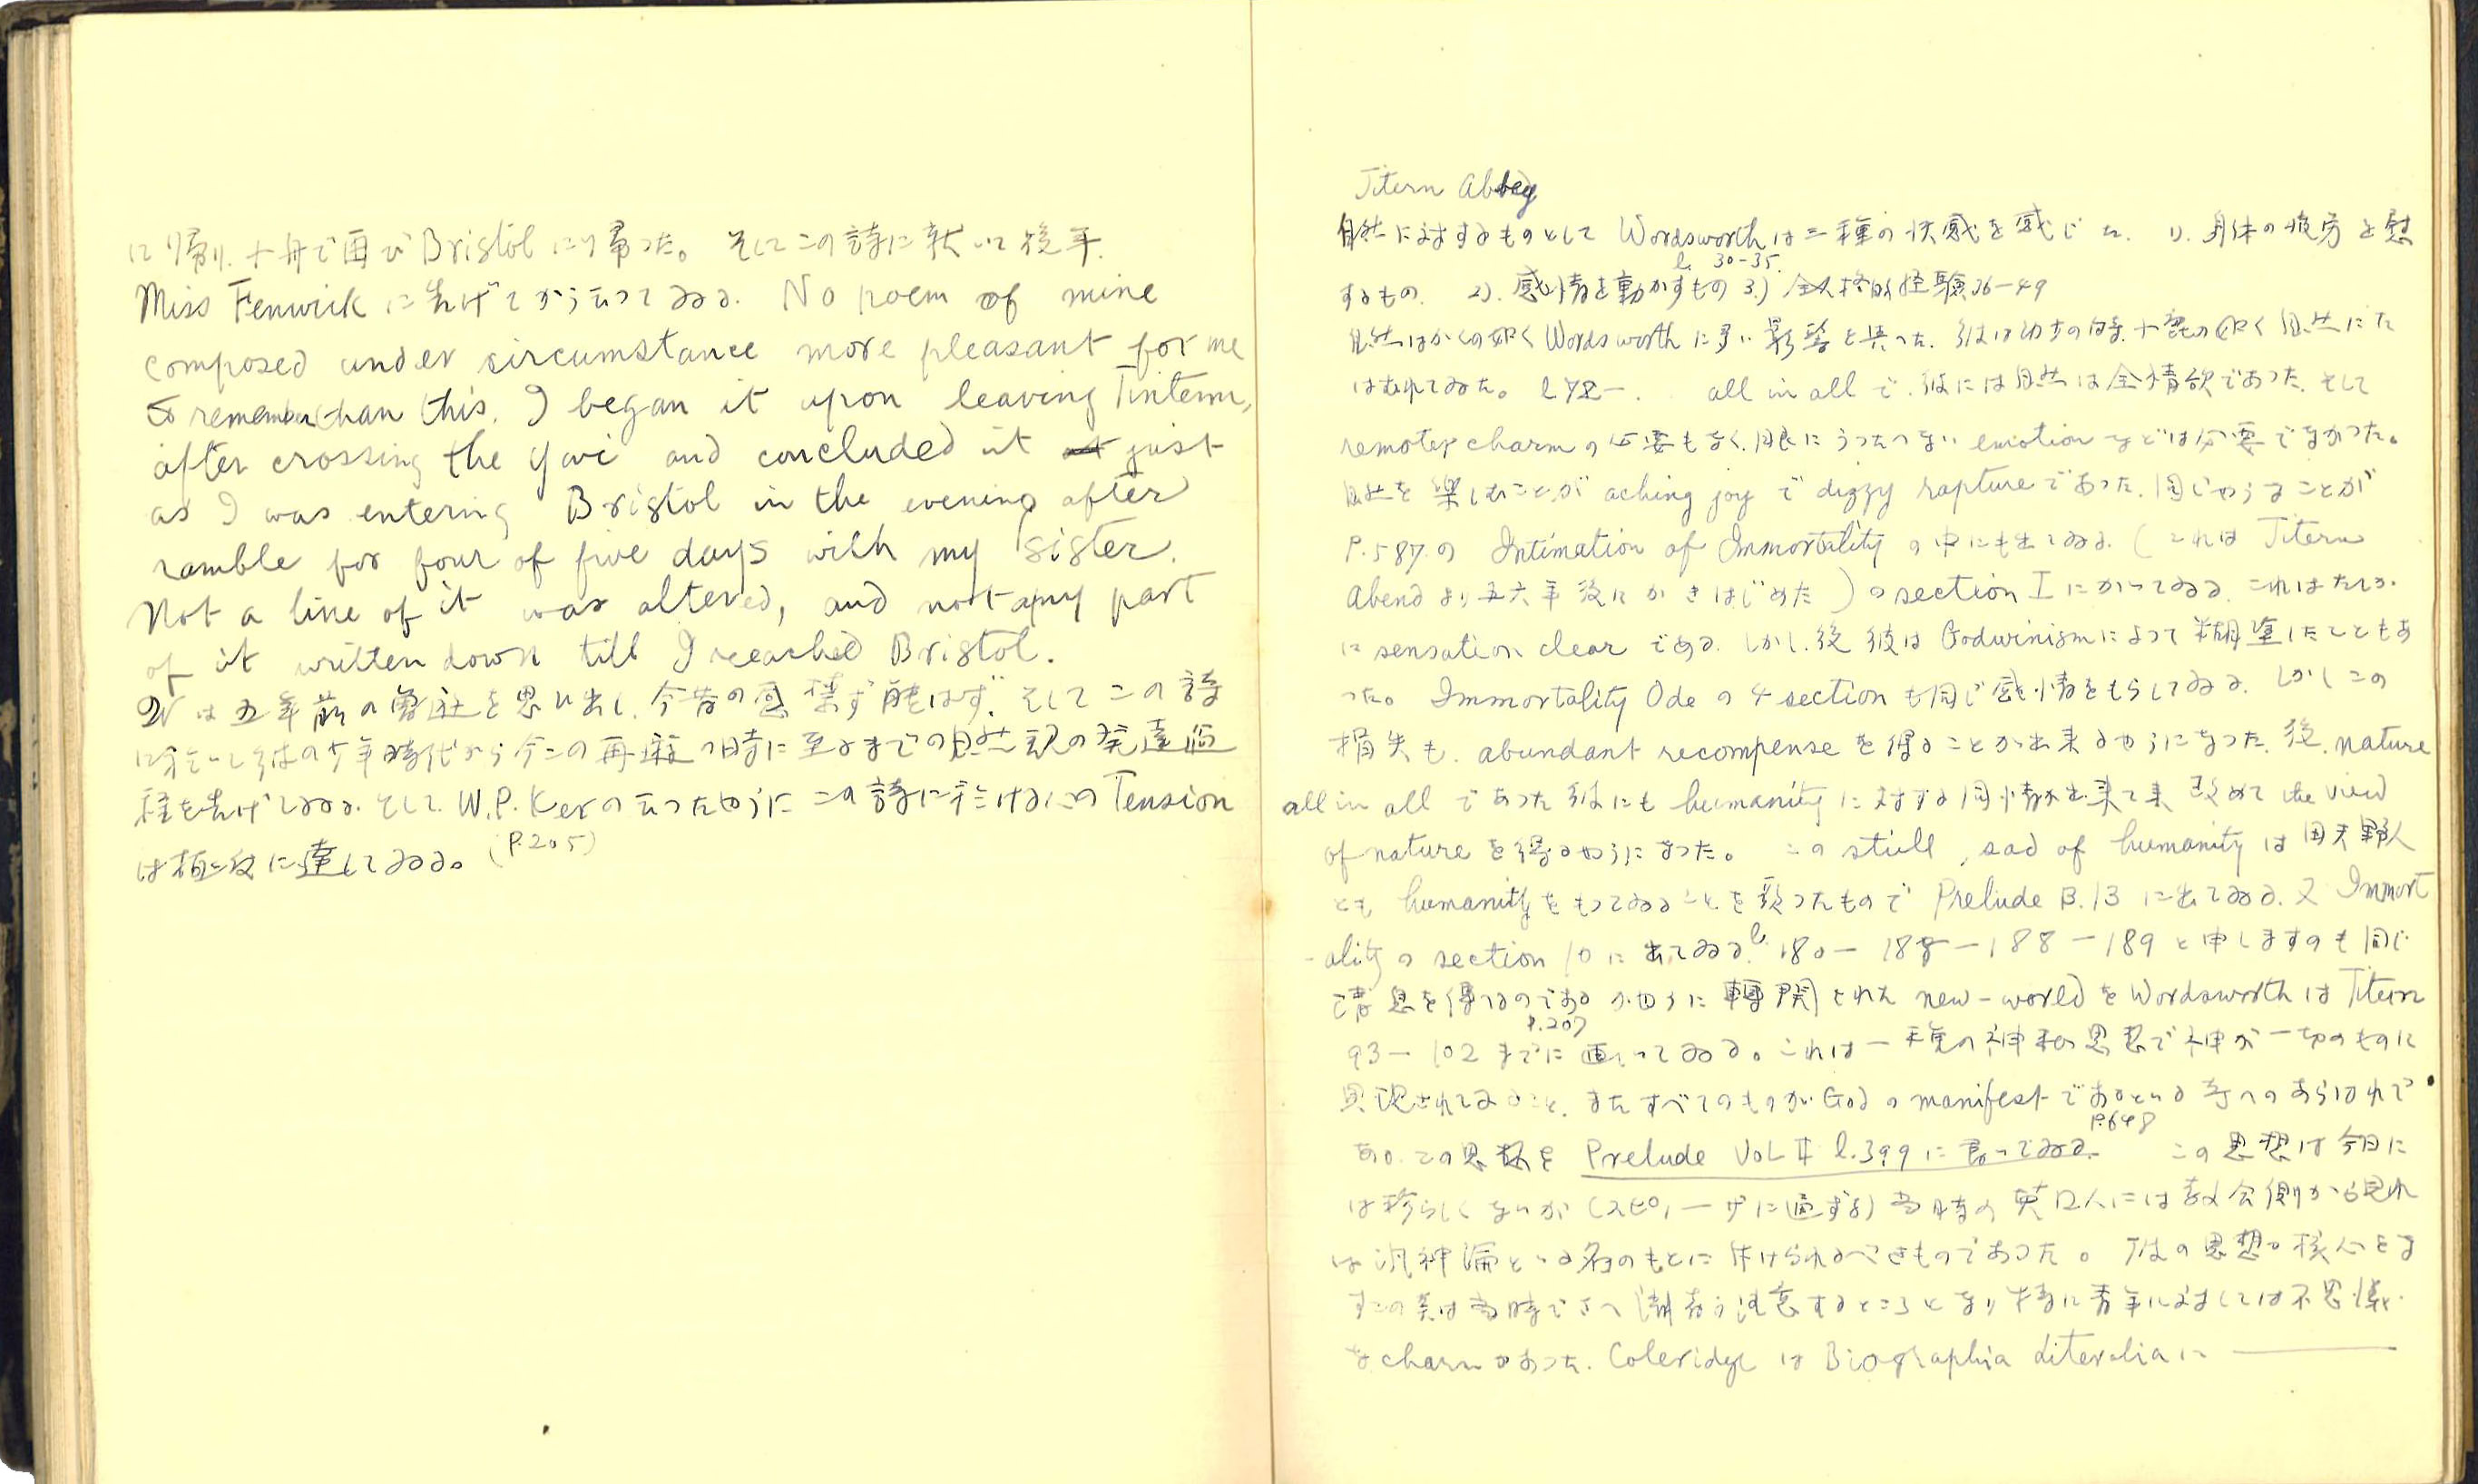 に帰り、小舟で再び Bristol に帰った。そしてこの詩に就いて後年
Miss Fenwick に告げてかう云つてゐる. No poem of mine
composed under circumstance more pleasant for me
to remember than this. I began it upon leaving Tintern,
after crossing the and concluded it just
as I was entering Bristol in the evening after
ramble for four of five days with my sister.
Not a line of it was altered, and not any part
of it written down till I reached Bristol.
は五年前の を思い出し、今昔の感禁ず能はず. そしてこの詩
に於いて彼の少年時代から今この再遊の時に至るまでの自然観の発達過
程を告げてゐる. そして W.P. Ker の云つたやうに この詩に於ける心の Tension
は極致に達してゐる。(P.205)
Titern Abbey
自然に対するものとして Wordsworth は三種の快感を感じた. 1). 身体の疲労を慰
l. 30-35.
するもの. 2). 感情を動かすもの 3.) 経験 36-49
自然はかくの如く Wordsworth に多い影響を與った. 彼は幼時の時 小鹿の如く自然にた
はむれてゐた。 all in all で. 彼には自然は全情欲であった. そして
remoter charm の必要もなく. 眼にうつらない emotion などは必要でなかった。
自然を楽しむことが aching joy で dizzy rapture であった. 同じやうなことが
P.587. の Intimation of Immortality の中にも出てゐる. (これは Titern
Abend より五六年後にかきはじめた) の section I にかいてゐる. これはたしか
に sensation clear である. しかし. 後 彼は Godwinism によって糊塗したこともあ
った。 Immortality Ode の 4 section も同じ感情をもらしてゐる. しかしこの
損失も. abundant recompense を得ることが出来るやうになった. 後. nature
all in all であった彼にも humanity に対する同情が出来て来 改めて the view
of nature を得るやうになった。 この still, sad of humanity は 野人
とも humanity をもつてゐることを歌ったもので Prelude B.13 に出てゐる. 又 Immort
-ality の section 10 に出てゐる. l. 180 - 188 - 188 - 189 と申しますのも同じ
消息を傳へるのである かやうに轉開された new-world を Wordsworth は Titern
P.207
93 - 102 までに画いてゐる。これは一種の神秘思想で神が一切のものに
具現されてゐること. またすべてのものが God の manifest であるといふ考へのあらはれで
P.648
ある. この思想を Prelude Vol II l.399 に言ってゐる. この思想は今日に
は珍らしくないが (スピノーザに通ずる) 当時の英国人には教会側から見れ
ば汎神論といふ名のもとに けられるべきものであった。彼の思想の核心をな
すこの美は当時でさへ 注意するところとなり 特に青年に対しては不思議
な charm があった. Coleridge は Biographia Literalia に